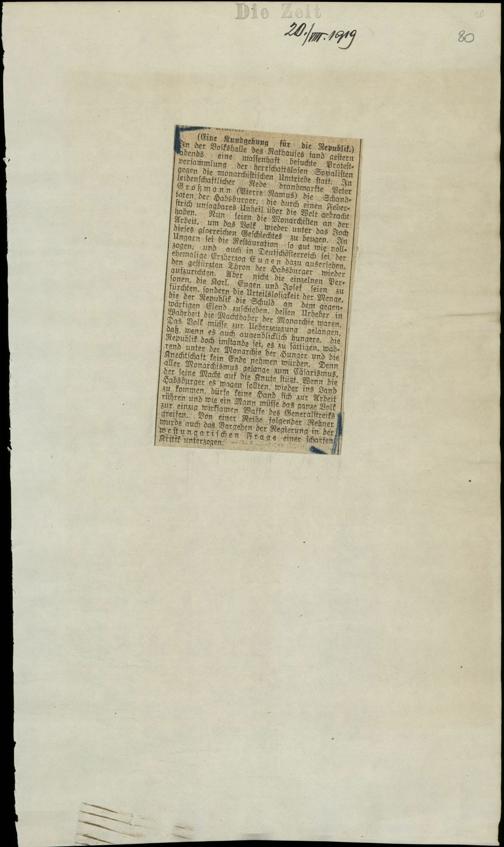 Die Zeit
20./VIII. 1919
80
(Eine Kundgebung für die Republik.)
In der Volkshalle des Rathauses fand gestern
abends eine massenhaft besuchte Protest-
versammlung der herrschaftslosen Sozialisten
gegen die monarchistischen Umtriebe statt. In
leidenschaftlicher Rede brandmarkte Peter
Großmann (Pierre Ramus) die Schand-
taten der Habsburger, die durch einen Feder-
strich unsagbares Unheil über die Welt gebracht
haben. Nun seien die Monarchisten an der
Arbeit, um das Volk wieder unter das Joch
dieses glorreichen Geschlechtes zu beugen. In
Ungarn sei die Restauration so gut wie voll-
zogen, und auch in Deutschösterreich sei der
ehemalige Erzherzog Eugen dazu ausersehen,
den gestürzten Thron der Habsburger wieder
aufzurichten. Aber nicht die einzelnen Per-
sonen, die Karl, Eugen und Josef seien zu
fürchten, sondern die Urteilslosigkeit der Menge,
die der Republik die Schuld an dem gegen-
wärtigen Elend zuschieben, dessen Urheber in
Wahrheit die Machthaber der Monarchie waren.
Das Volk müsse zur Ueberzeugung gelangen,
daß, wenn es auch augenblicklich hungere, die
Republik doch imstande sei, es zu sättigen, wäh-
rend unter der Monarchie der Hunger und die
Knechtschaft kein Ende nehmen würden. Denn
aller Monarchismus gelange zum Cäsarismus,
der seine Macht auf die Knute stützt. Wenn die
Habsburger es wagen sollten, wieder ins Land
zu kommen, dürfe keine Hand sich zur Arbeit
rühren und wie ein Mann müsse das ganze Volk
zur einzig wirksamen Waffe des Generalstreiks
greifen. Von einer Reihe folgender Redner
wurde auch das Vorgehen der Regierung in der
westungarischen Frage einer scharfen
Kritik unterzogen.